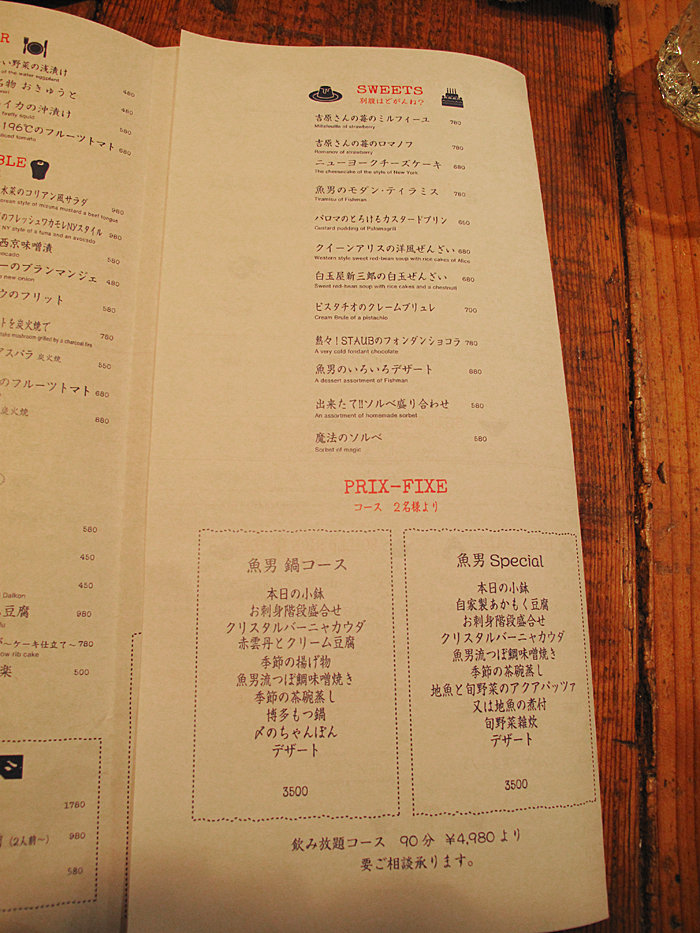 R
い野菜の浅漬け
of the water eggplant
480
名物 おきゅうと
480
イカの沖漬け
firefly squid
580
196℃のフルーツトマト
iced tomato
680
BLE
水菜のコリアン風サラダ
orean style of mizuna mustard a beef tongue
980
のフレッシュワカモレNYスタイル
NY style of a tuna and an avocado
980
西京味噌漬
vocado
580
ーのブランマンジェ
e new-onion
480
ウのフリット
580
トを炭火焼で
itake mushroom grilled by a charcoal fire
780
アスパラ 炭火焼
550
のフルーツトマト 680
炭火焼
680
580
450
450
Daikon
豆腐
980
ﾞ～ケーキ仕立て～780
ow rib cake
楽
500
1780
(2人前～) 980
580
SWEETS
別腹はどがんね?
吉原さんの苺のミルフィーユ 780
Millefeuille of strawberry
吉原さんの苺のロマノフ 780
Romanov of strawberry
ニューヨークチーズケーキ 680
The cheesecake of the style of New York
魚男のモダン・ティラミス 780
Teamisu of Fishman
パロマのとろけるカスタードプリン 650
Custard pudding of Palomagrill
クイーンアリスの洋風ぜんざい 680
Western style sweet red-bean soup with rice cakes of Alice
白玉屋新三郎の白玉ぜんざい 680
Sweet red-bean soup with rice cakes and a chestnut
ピスタチオのクレームブリュレ 700
Cream Brule of a pistachio
熱々!STAUBのフォンダンショコラ 780
A very cold fondant chocolate
魚男のいろいろデザート 880
A dessert assortment of Fishman
出来たて!!ソルベ盛り合わせ 580
An assortment of homemade sorbet
魔法のソルベ 580
Sorbet of magic
PRIX-FIXE
コース 2名様より
魚男 鍋コース
本日の小鉢
お刺身階段盛合せ
クリスタルバーニャカウダ
赤雲丹とクリーム豆腐
季節の揚げ物
魚男流つぼ鯛味噌焼き
季節の茶碗蒸し
博多もつ鍋
〆のちゃんぽん
デザート
3500
魚男 Special
本日の小鉢
自家製あかもく豆腐
お刺身階段盛合せ
クリスタルバーニャカウダ
魚男流つぼ鯛味噌焼き
季節の茶碗蒸し
地魚と旬野菜のアクアパッツァ
又は地魚の煮付
旬野菜雑炊
デザート
3500
飲み放題コース 90分 ¥4,980より
要ご相談承ります。